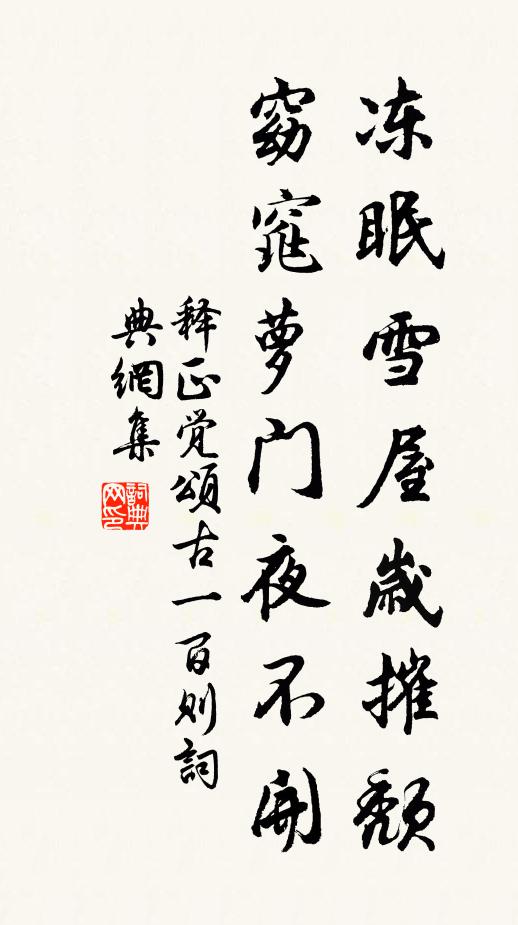 冻眠雪屋歲摧颓
窈窕萝门夜不開
释正觉頌古一百则詞
典網集
詞典网印